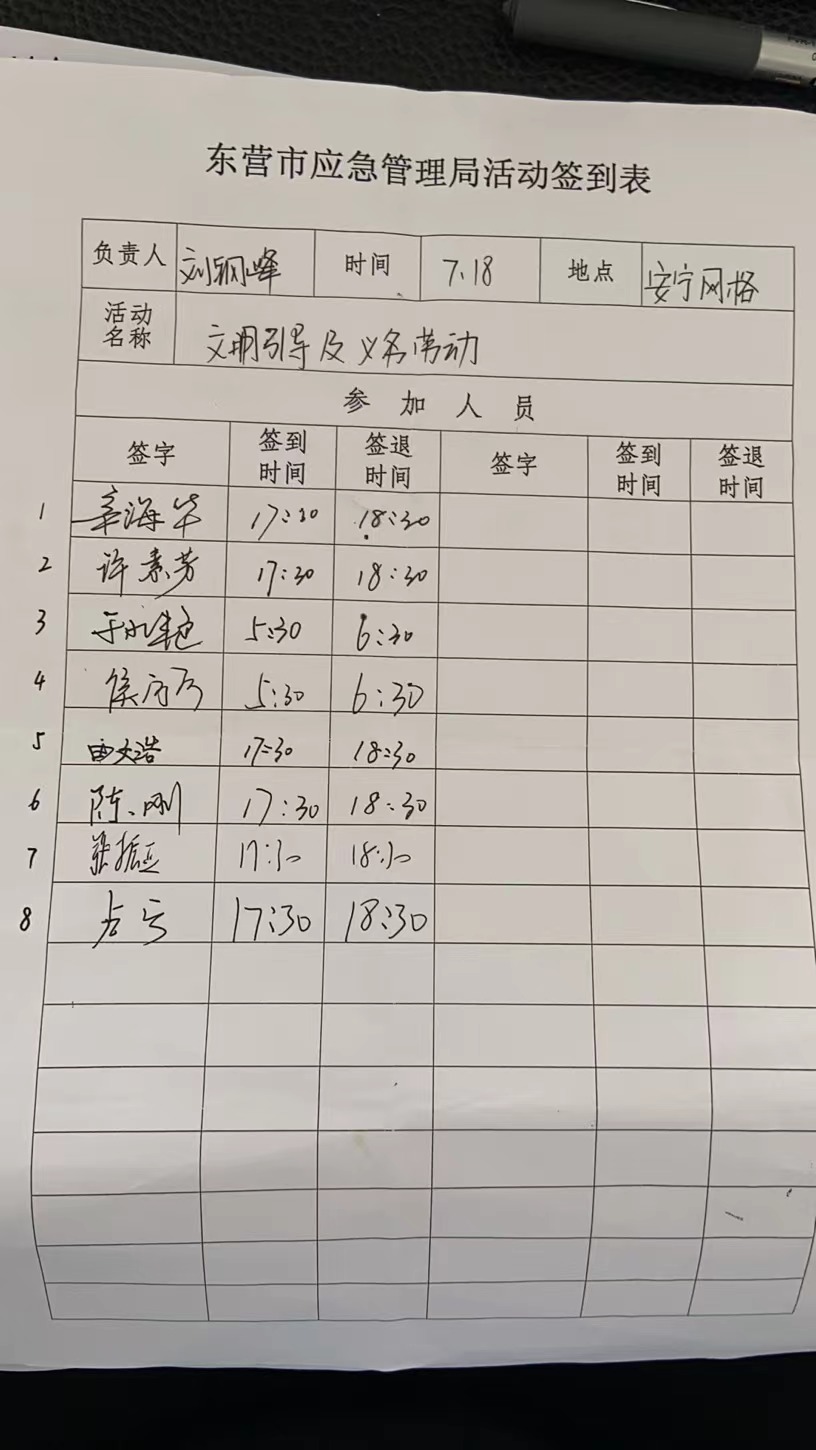 东营市应急管理局活动签到表
负责人 刘钢峰 时间 7.18 地点 安宁网格
活动名称 文明引导及义务劳动
参加人员
签字 签到时间 签退时间 签字 签到时间 签退时间
1 辛海华 17:30 18:30
2 许素芳 17:30 18:30
3 5:30 6:30
4 5:30 6:30
5 17:30 18:30
6 陈刚 17:30 18:30
7 张振亚 17:30 18:30
8 17:30 18:30